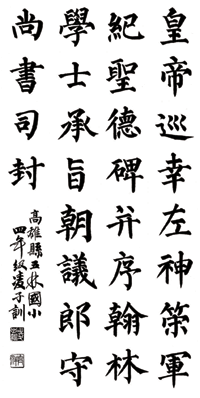 皇帝巡幸左神策軍
紀聖德碑并序翰林
學士承旨朝議郎守
尚書司封
高雄縣五林國小
四年級凌子訓